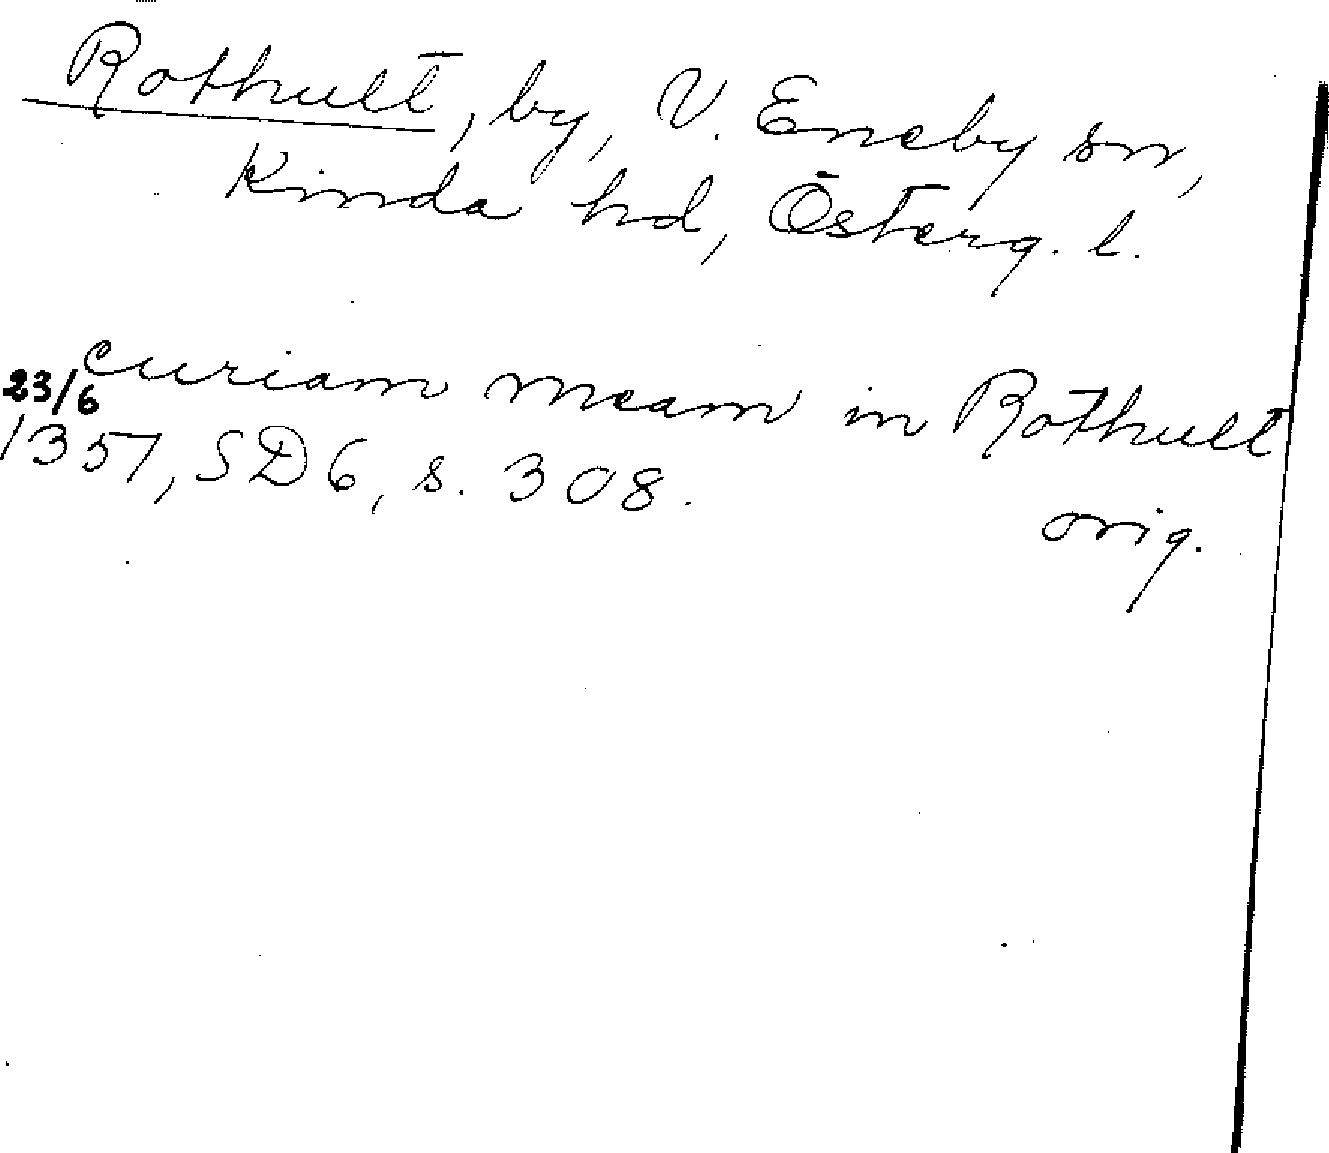 Rothult, by, V. Eneby sn,
Kinda hd, Österg. l.
curiam meam in Rothult
23/6
1357, SD 6, s. 308.
orig.